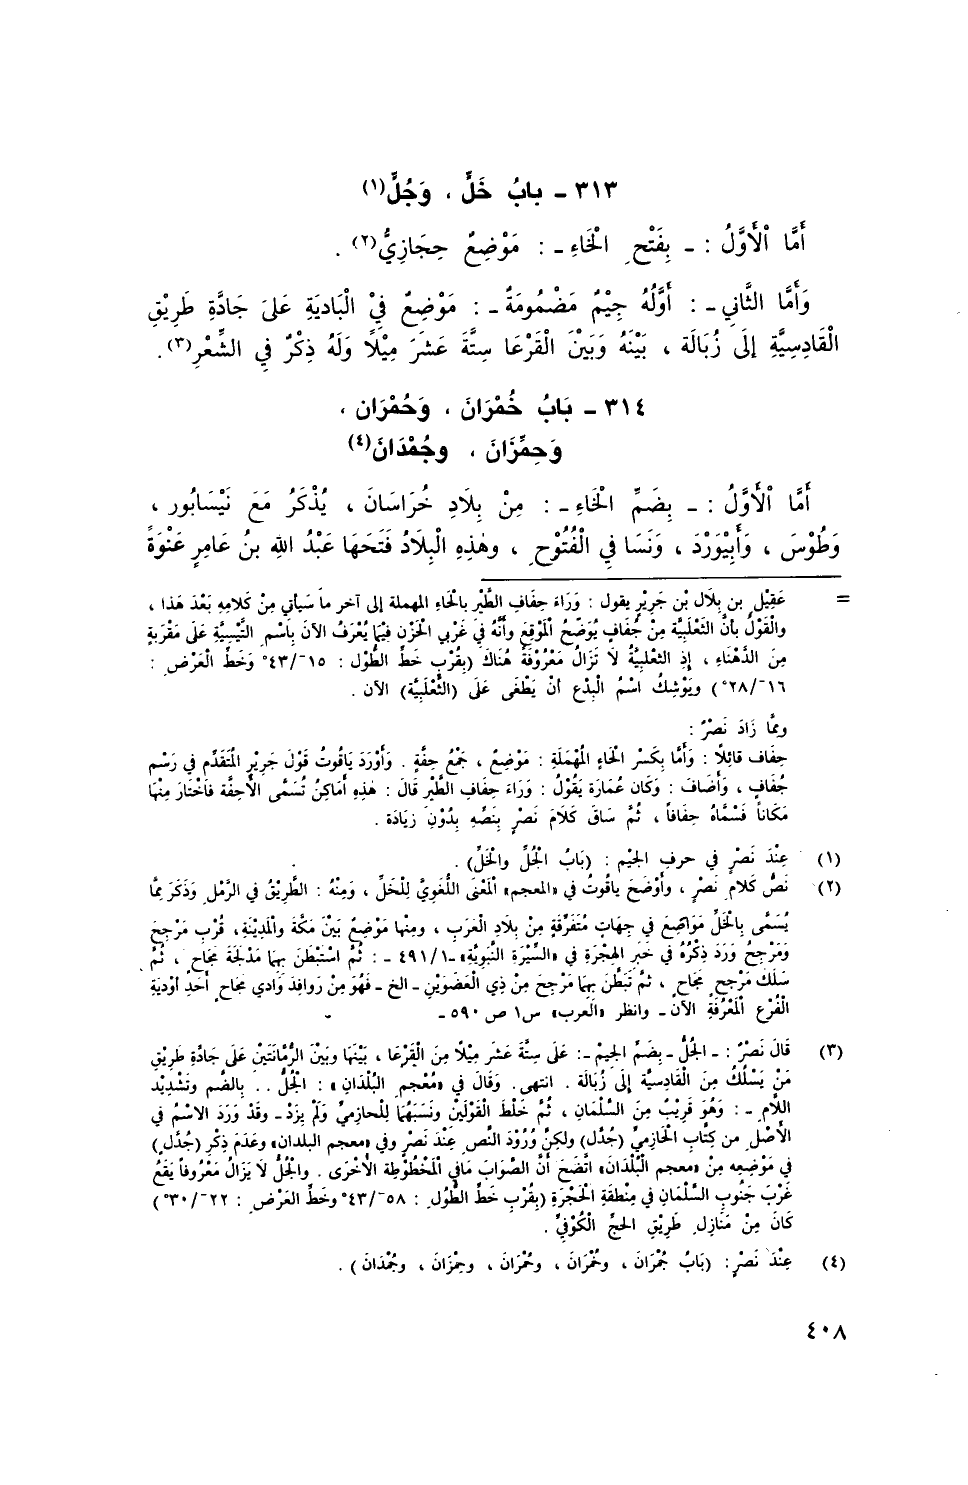 ٣١٣ ـ بابُ خَلٍّ ، وَجُلٍّ(١)
أَمَّا الْأَوَّلُ : ـ بِفَتْحِ الْخَاءِ ـ : مَوْضِعٌ حِجَازِيٌّ(٢) .
وَأَمَّا الثَّانِي ـ : أَوَّلُهُ جِيْمٌ مَضْمُومَةٌ ـ : مَوْضِعٌ فِيْ الْبَادِيَةِ عَلىَ جَادَّةِ طَرِيْقِ
الْقَادِسِيَّةِ إِلَى زُبَالَة ، بَيْنَهُ وَبَيْنَ الْقَرْعَا سِتَّةَ عَشَرَ مِيْلًا وَلَهُ ذِكْرٌ فِي الشِّعْرِ(٣).
٣١٤ ـ بَابُ خُمْرَانَ ، وَحُمْرَان ،
وَحِمِّزَانَ ، وجُمْدَانَ(٤)
أَمَّا الْأَوَّلُ : ـ بِضَمِّ الْخَاءِ ـ : مِنْ بِلَادِ خُرَاسَانَ ، يُذْكَرُ مَعَ نَيْسَابُور ،
وَطُوْسَ ، وَأَبِيْوَرْدَ ، وَنَسَا فِي الْفُتُوْحِ ، وهٰذِهِ الْبِلَادُ فَتَحَهَا عَبْدُ اللهِ بنُ عَامِرٍ عَنْوَةً
= عَقِيْلِ بن بِلَال بْن جَرِيْرٍ يقول : وَرَاءَ حِفَافِ الطَّيْرِ بالحَاءِ المهملة إلى آخر ما سَيأتي مِنْ كلامِهِ بَعْدَ هَذا ،
والقَوْلُ بأنَّ الثَّعْلَبِيَّةَ مِنْ جُفَافٍ يُوَضِّحُ الْمَوْقِعَ وأنَّهُ فِي غَرْبي الحَزْنِ فيْمَا يُعْرَفُ الآنَ بِاسْمِ التَّيْسِيَّةِ عَلَى مَقْرَبَةٍ
مِنَ الدَّهْنَاءِ ، إذِ الثعْلَبِيَّةُ لاَ تَزَالُ مَعْرُوْفَةً هُنَاكَ (بِقُرْبِ خَطِّ الطُّوْلِ : ١٥َ/٤٣ْ وَخَطِّ الْعَرْضِ :
١٦َ/٢٨ْ) ويُوْشِكُ اسْمُ الْبِدْعِ أنْ يَطْغَى عَلَى (الثَّعْلَبِيَّةِ) الآن .
وممَّا زَادَ نَصْرٌ :
حِفَاف قائِلًا : وَأمَّا بِكَسْرِ الْحَاءِ الْمُهْمَلَةِ : مَوْضِعٌ ، جَمْعُ حِفَّةٍ . وَأوْرَدَ يَاقُوتُ قَوْلَ جَرِيْرٍ الْمُتَقَدِّم في رَسْمِ
جُفَافٍ ، وَأضَافَ : وَكَان عُمَارَة يَقُوْلُ : وَرَاءَ حِفَافِ الطَّيْرِ قَالَ : هٰذِهِ أمَاكِنُ تُسَمَّى الأحِفَّة فَاخْتَارَ مِنْهَا
مَكَاناً فَسْمَّاهُ حِفَافاً ، ثُمَّ سَاقَ كَلَامَ نَصْرٍ بِنَصِّهِ بِدُوْنِ زيَادَة .
(١) عِنْدَ نَصْرٍ في حرفِ الجيْم : (بَابُ الْجُلِّ والْخَلِّ) .
(٢) نَصُّ كلامِ نَصْرٍ ، وأوْضَحَ ياقُوتُ في «المعجم» الْمَعْنَى اللُّغَوِيَّ لِلْخَلِّ ، وَمِنْهُ : الطَّرِيْقُ في الرَّمْلِ وَذَكَرَ ممَّا
يُسَمَّى بِالْخَلِّ مَوَاضِعَ فِي جِهَاتٍ مُتَفَرِّقَةٍ مِنْ بِلَادِ الْعَرَبِ ، ومِنْهَا مَوْضِعٌ بَيْنَ مَكَّةَ والْمَدِيْنَةِ، قُرْبَ مَرْجِحَ
وَمَرْجِحُ وَرَدَ ذِكْرُهُ في خَبَرِ الهِجْرَةِ فِي «السِّيْرَةِ النَّبَوِيَّةِ» ـ٤٩١/١ ـ : ثُمَّ اسْتَبْطَنَ بِهِمَا مَدْلَجَةَ مَجَاحٍ ، ثُمَّ
سَلَكَ مَرْجِحَ مَجَاحٍ ، ثمَّ تَبَطَّنَ بِهِمَا مَرْجِحَ مِنْ ذِي الْعَضَوَيْنِ ـ الخ ـ فَهُوَ مِنْ رَوافِدَ وَادي مَجَاحٍ أحَدِ أوْدِيَةِ
الْفُرْعِ الْمَعْرُفَةِ الآنَ ـ وانظر «العرب» س١ ص ٥٩٠ ـ
(٣) قَالَ نَصْرٌ : ـ الجُلُّ ـ بِضَمِّ الجِيْمِ ـ: عَلَى سِتَّةَ عَشَرَ مِيْلًا مِنَ الْقَرْعَا ، بَيْنَهَا وبَيْنَ الرُّمَّانَتَيْنَ عَلَى جَادَّةِ طَرِيْقِ
مَنْ يَسْلُكُ مِنَ الْقَادِسِيَّةِ إلَى زُبَالَةَ . انتهى. وَقَالَ في «مُعْجَمِ الْبُلْدَانِ» : الْجُلُّ .. بِالضَّم وتَشْدِيْدِ
اللَّامِ ـ : وَهُوَ قَرِيْبٌ مِنَ السَّلْمَانِ ، ثُمَّ خَلَطَ الْقَوْلَيْنِ ونَسَبَهُمَا لِلْحازِمِيِّ وَلَمْ يَزِدْ ـ وقَدْ وَرَدَ الاسْمُ فِي
الأصْلِ من كِتَابِ الْحَازِمِيِّ (جُدُل) ولكِنَّ وُرُوْدَ النَّصِّ عِنْدَ نَصْرٍ وفي «معجم البلدان» وعَدَمَ ذِكْرِ (جُدُل)
في مَوْضِعِهِ مِنْ «معجم الْبُلْدَانِ» اتَّضَحَ أنَّ الصَّوَابَ مَافي الْمَخْطُوْطَةِ الأخْرَى . والْجُلُّ لاَ يَزَالُ مَعْرُوفاً يَقَعُ
غَرْبَ جَنُوبِ السَّلْمَانِ فِي مِنْطَقَةِ الْحَجَرَةِ (بِقُرْبِ خَطِّ الطُّوْلِ : ٥٨َ/٤٣ْ وخَطِّ العَرْضِ : ٢٢َ/٣٠ْ)
كَانَ مِنْ مَنَازِلِ طَرِيْقِ الحجِّ الْكُوْفِيِّ .
(٤) عِنْدَ نَصْرٍ: (بَابُ جُمْرَانَ ، وخُمْرَانَ ، وحُمْرَانَ ، وحِمْزَانَ ، وجُمْدَانَ ) .
٤٠٨